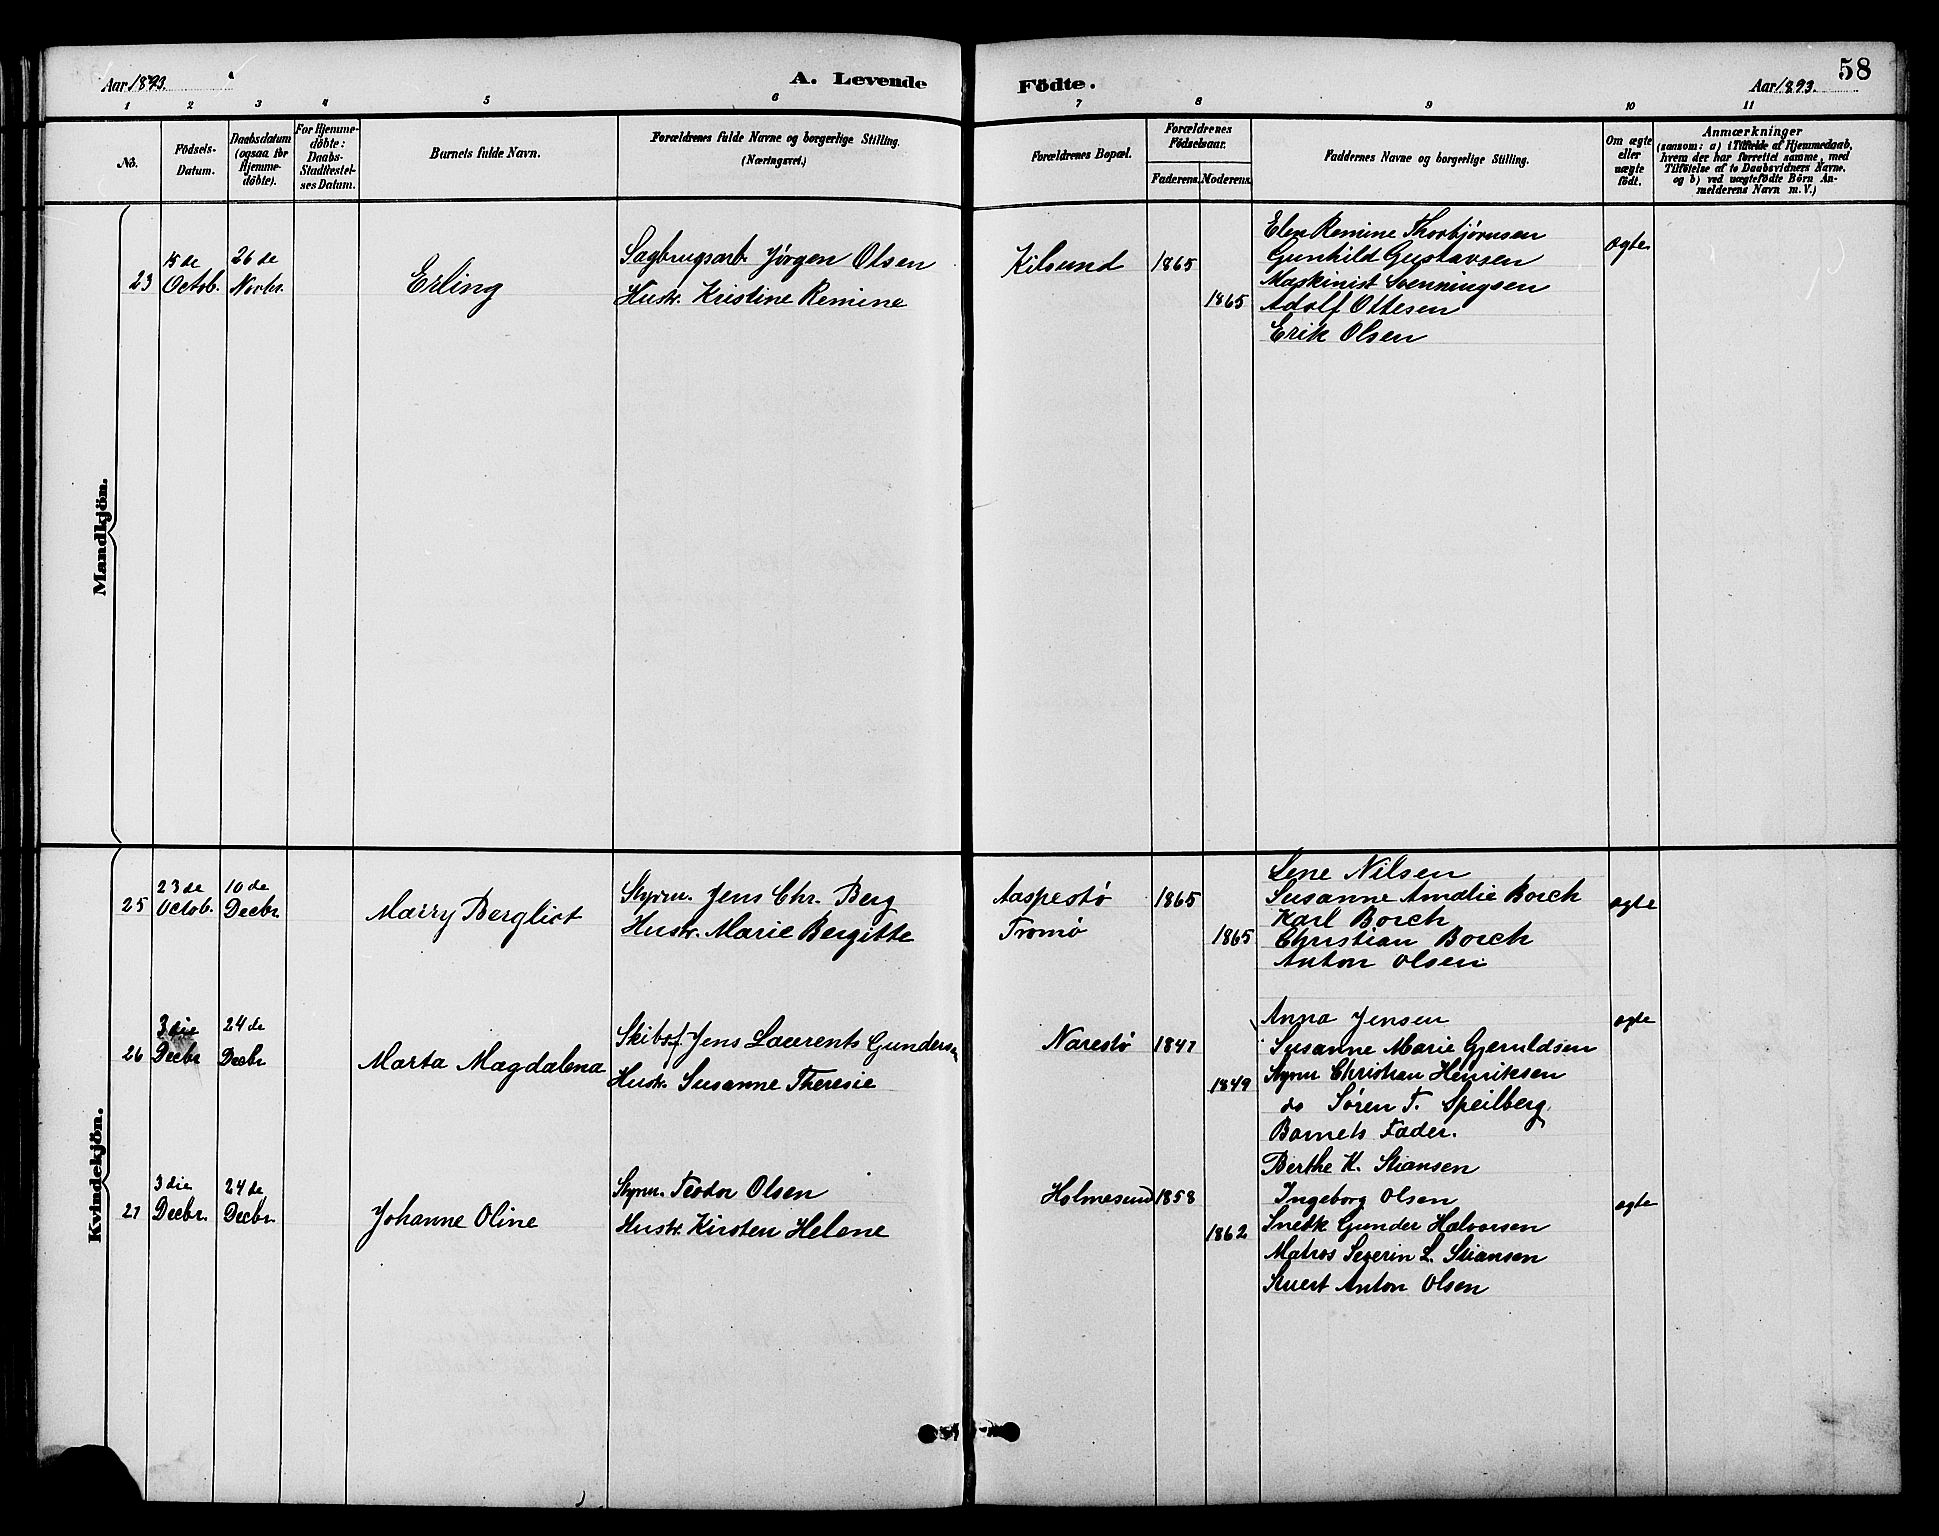 58
Aar 1893.
A. Levende Födte.
Aar 1893.
1 2 3 4 5 6 7 8 9 10 11
No.
Födsels-Datum.
Daabsdatum (ogsaa for Hjemme-döbte).
For Hjemme-döbte: Daabs-Stadfestel-ses Datum.
Barnets fulde Navn.
Forældrenes fulde Navne og borgerlige Stilling.
(Næringsvei.)
Forældrenes Bopæl.
Forældrenes Födselsaar.
Faderens. Moderens.
Faddernes Navne og borgerlige Stilling.
Om ægte eller uægte födt.
Anmærkninger
(sansom: a) i Tilfælde af Hjemmedaab,
hvem der har forrettet samme, med
Tilföielse af to Daabsvidners Navne.
og b) ved uægtefödte Börn An-
melderens Navn m. V.)
Mandkjön.
23
15de Octob.
26de Novbr.
Erling
Sagbrugsarb. Jørgen Olsen
Hustr. Kristine Remine
Kilsund
1865
1865
Elen Remine Thorbjørnsen
Gunhild Gustavsen
Maskinist Svenningsen
Adolf Ottesen
Erik Olsen
ægte
Kvindekjön.
25
23de Octob.
10de Decbr
Marry Bergliot
Styrm. Jens Chr. Berg
Hustr. Marie Bergitte
Aaspestø
Tromø
1865
1865
Lene Nilsen
Susanne Amalie Borch
Karl Borch
Christian Borch
Anton Olsen
ægte
26
3die Decbr
24de Decbr
Marta Magdalena
Skibsf. Jens Laurents Gundersn
Hustr. Susanne Theresie
Narestø
1847
1849
Anna Jensen
Susanne Marie Gjeruldsen
Styrm Christian Henriksen
do Søren T. Speilberg.
Barnets Fader.
ægte
27
3die Decbr.
24de Decbr.
Johanne Oline
Styrm. Teodor Olsen
Hustr. Kirsten Helene
Holmesund
1858
1862
Berthe K. Stiansen
Ingeborg Olsen
Snedk Gunder Halvorsen
Matros Severin L. Stiansen
Stuert Anton Olsen
ægte